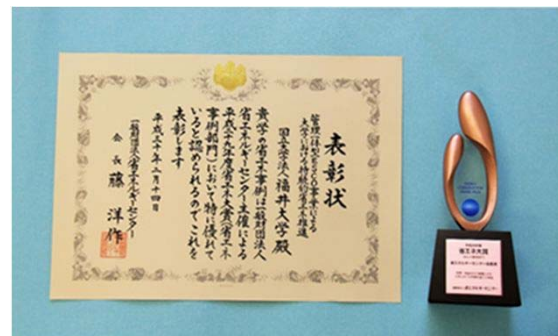 表彰状
管理一体型ESCO事業による
大学における持続的省エネ推進
国立大学法人 福井大学 殿
貴学の省エネ事例は一般財団法人
省エネルギーセンター主催による
平成二十九年度省エネ大賞(省エネ
事例部門)において特に優れて
いると認められるのでこれを
表彰します
平成三十年二月十四日
一般財団法人省エネルギーセンター
会長 藤 洋作
省エネ大賞
省エネルギーセンター会長賞
省エネルギーセンター